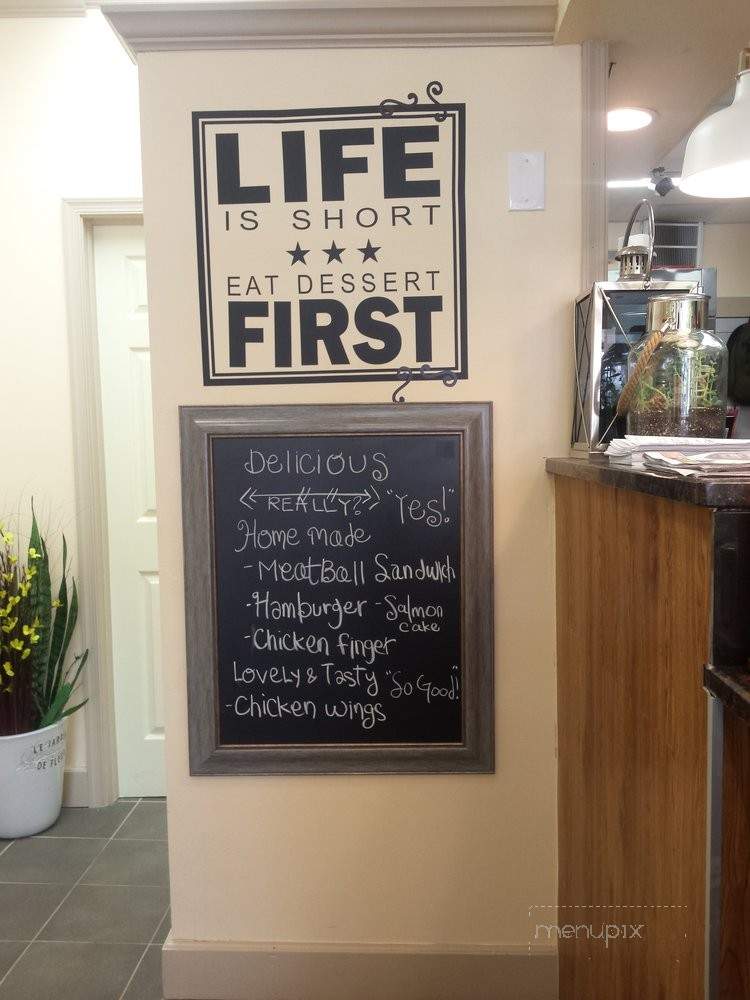 LIFE
IS SHORT
EAT DESSERT
FIRST
Delicious
REALLY? "Yes!"
Home made
- Meatball Sandwich
- Hamburger - Salmon cake
- Chicken finger
Lovely & Tasty "So Good!"
- Chicken wings
LE JARD
DE FLE
menupix